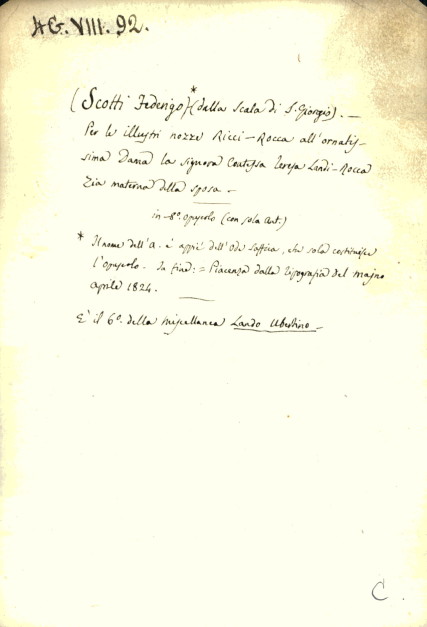 AG. VIII. 92.
(Scotti Federigo)* (dalla Scala di S. Giorgio). —
Per le illustri nozze Ricci-Rocca all'ornatis-
sima Dama la signora Contessa Teresa Landi-Rocca
Zia materna della sposa. —
in-8º. opuscolo (con sola ant.)
* Il nome dell'a. è appiè dell'Ode Saffica, che sola costituisce
l'opuscolo. In fine: = Piacenza dalla Tipografia del Majno
aprile 1824.
È il 6º. della Miscellanea Lando Ubertino —
C